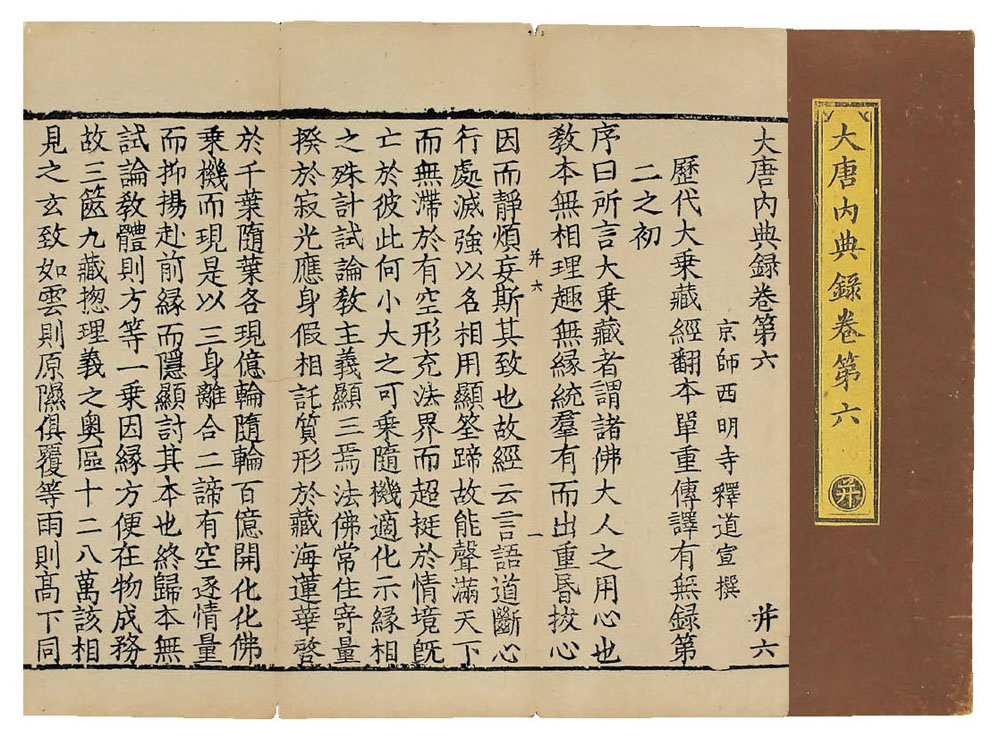 大唐內典錄卷第六 并
大唐內典録卷第六 并六
京師西明寺釋道宣撰
歷代大乗藏經翻本單重傳譯有無録第
二之初
序曰所言大乗藏者謂諸佛大人之用心也
敎本無相理趣無縁統羣有而出重昬拔心
并六 一
因而靜煩妄斯其致也故經云言語道斷心
行處滅強以名相用顯筌蹄故能聲滿天下
而無滯於有空形充法界而超挺於情境旣
亡於彼此何小大之可乗隨機適化示縁相
之殊計試論敎主義顯三焉法佛常住寄量
揆於寂光應身假相託質形於藏海蓮華啓
於千葉隨葉各現億輪隨輪百億開化化佛
乗機而現是以三身離合二諦有空逐情量
而抑揚赴前縁而隱顯討其本也終歸本無
試論敎體則方等一乗因縁方便在物成務
故三篋九藏揔理義之奧區十二八萬該相
見之玄致如雲則原隰俱覆等雨則髙下同